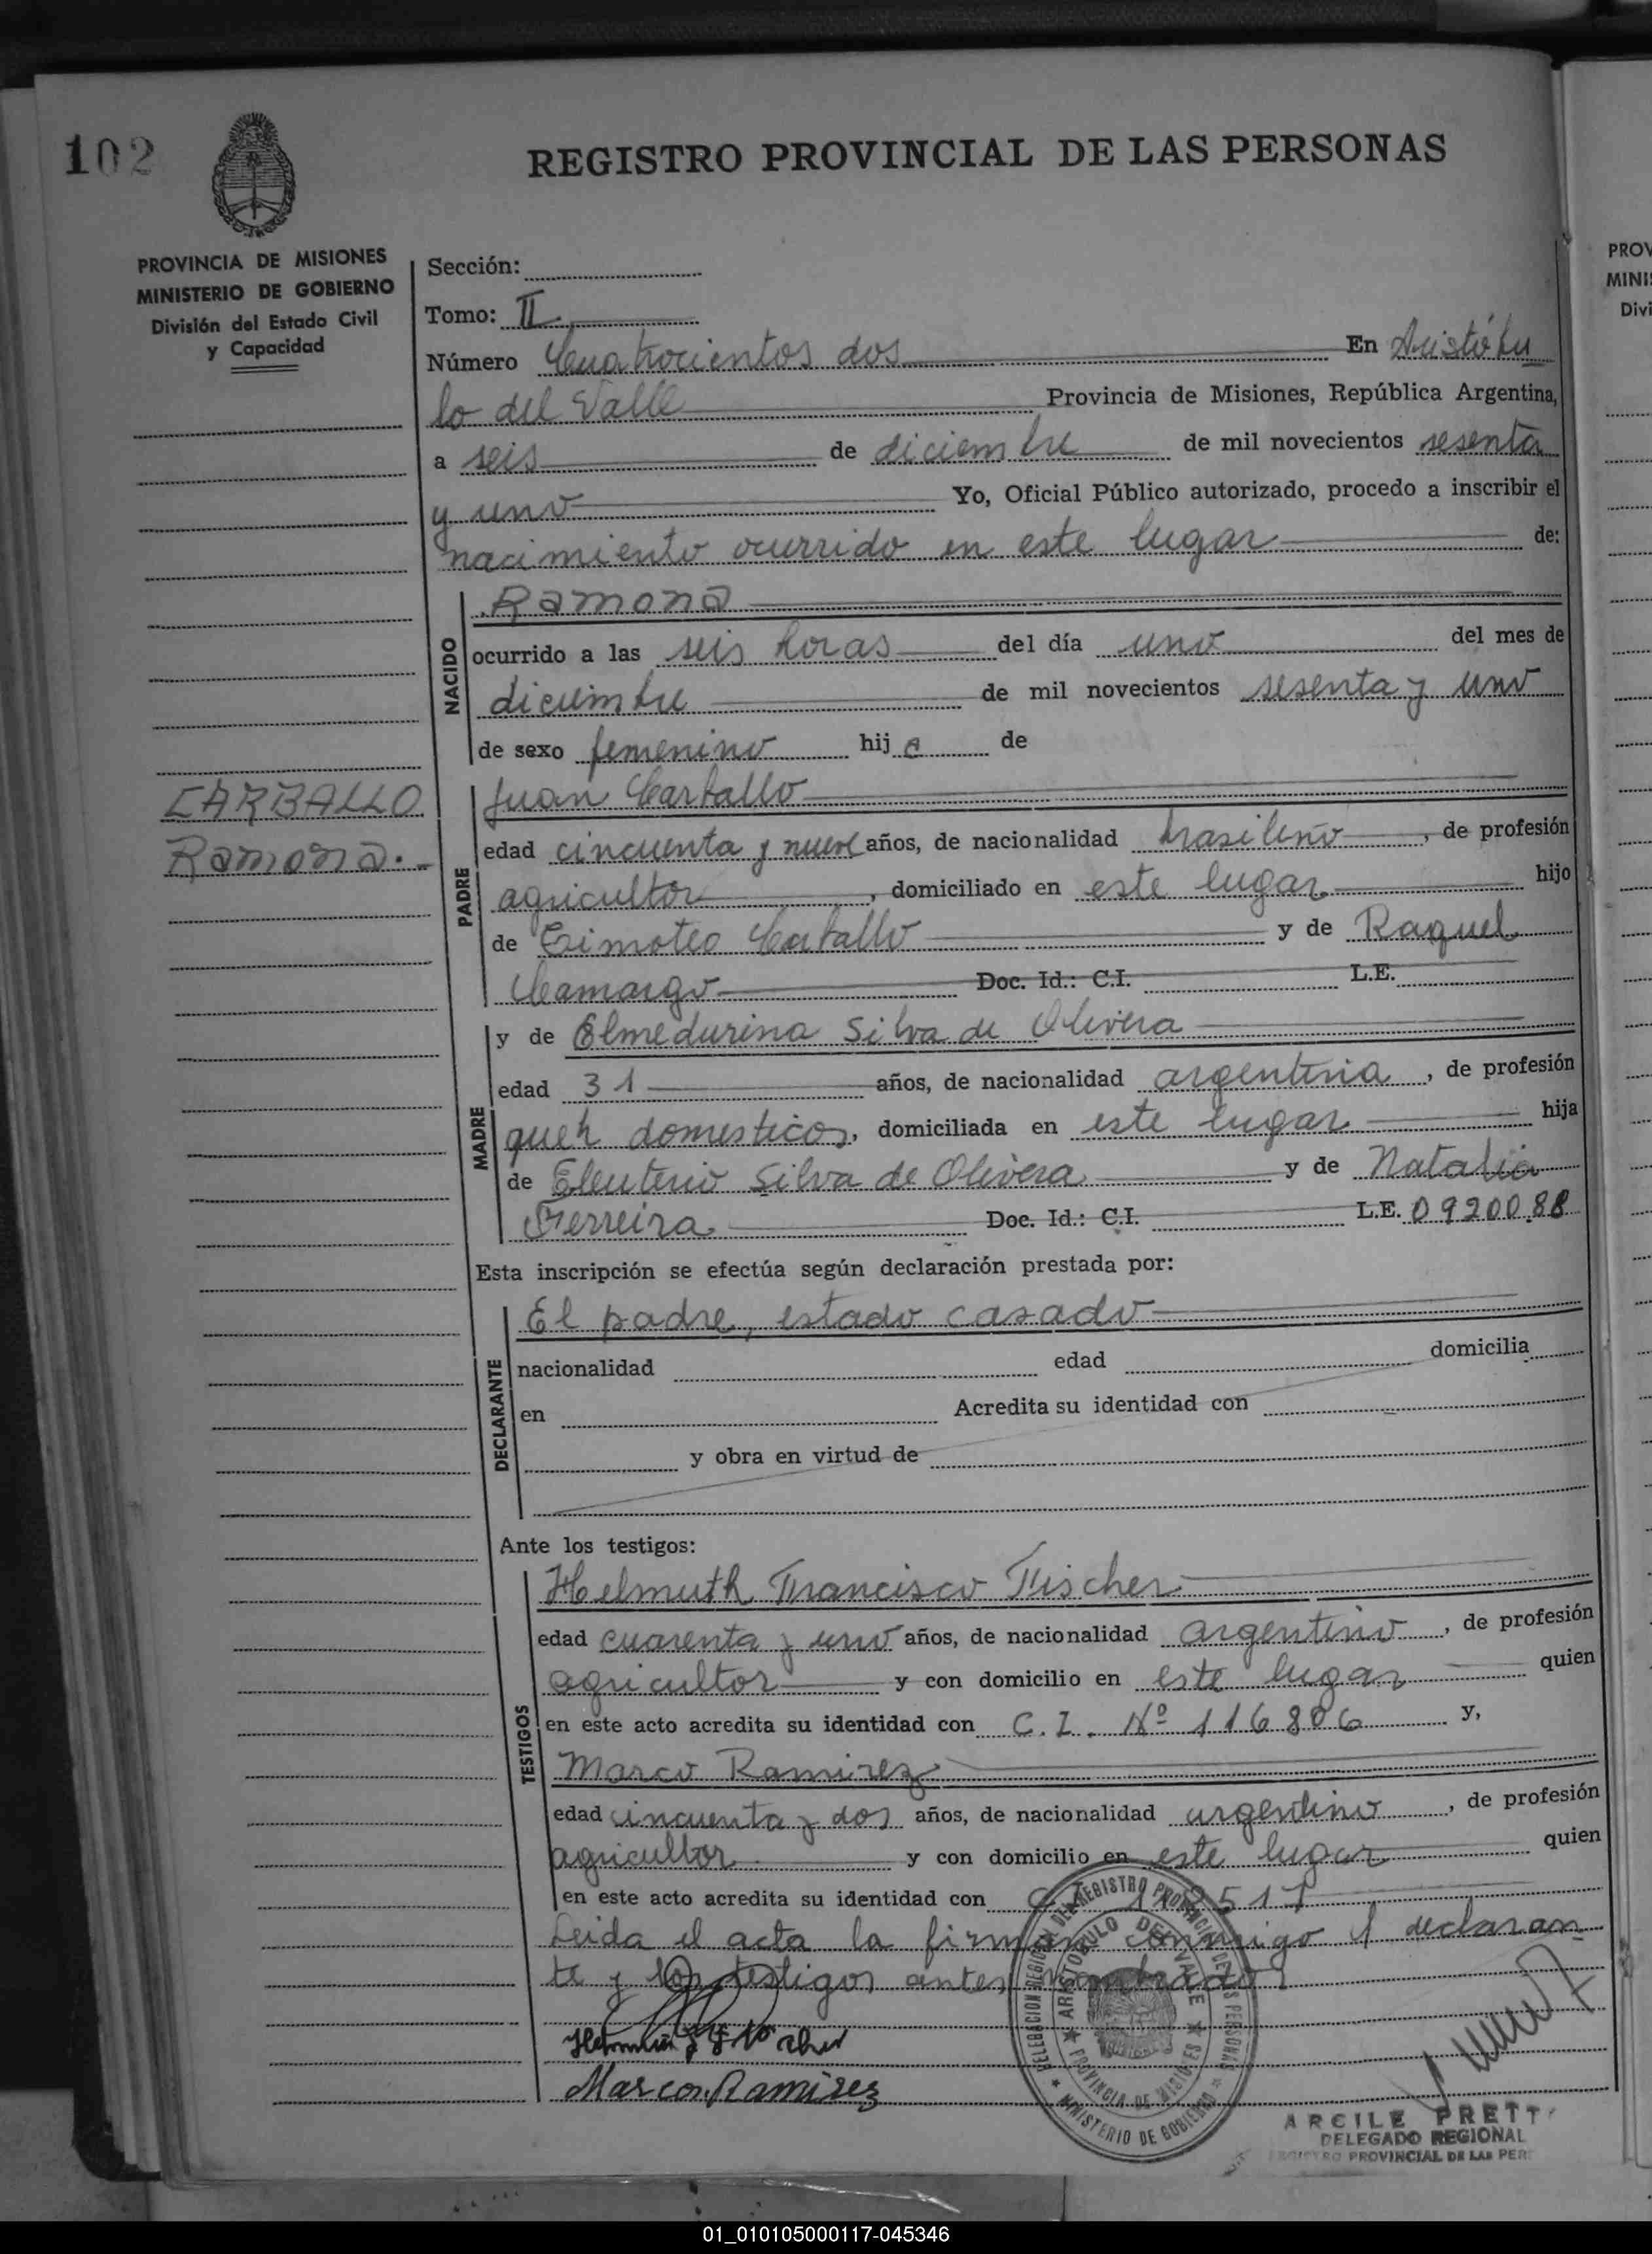 102
REGISTRO PROVINCIAL DE LAS PERSONAS
PROVINCIA DE MISIONES
MINISTERIO DE GOBIERNO
División del Estado Civil
y Capacidad
Sección:
Tomo: II
Número Cuatrocientos dos En Aristóbu
lo del Valle Provincia de Misiones, República Argentina,
a seis de diciembre de mil novecientos sesenta
y uno Yo, Oficial Público autorizado, procedo a inscribir el
nacimiento ocurrido en este lugar de:
NACIDO
Ramona
ocurrido a las seis horas del día uno del mes de
diciembre de mil novecientos sesenta y uno
de sexo femenino hij a de
CARBALLO
Ramona.-
PADRE
Juan Carballo
edad cincuenta y nueve años, de nacionalidad brasileño, de profesión
agricultor, domiciliado en este lugar hijo
de Timoteo Carballo y de Raquel
Camargo Doc. Id.: C.I. L.E.
MADRE
y de Elmedurina Silva de Olivera
edad 31 años, de nacionalidad argentina, de profesión
queh domesticos, domiciliada en este lugar hija
de Eleuterio Silva de Olivera y de Natalia
Ferreira Doc. Id.: C.I. L.E. 0920088
Esta inscripción se efectúa según declaración prestada por:
DECLARANTE
El padre, estado casado
nacionalidad edad domicilia
en Acredita su identidad con
y obra en virtud de
Ante los testigos:
TESTIGOS
Helmuth Francisco Fischer
edad cuarenta y uno años, de nacionalidad argentino, de profesión
agricultor y con domicilio en este lugar quien
en este acto acredita su identidad con C.I. Nº 116806 y,
Marco Ramirez
edad cincuenta y dos años, de nacionalidad argentino, de profesión
agricultor y con domicilio en este lugar quien
en este acto acredita su identidad con
Leida el acta la firman conmigo el declaran
te y los testigos antes nombrados
Marcos Ramirez
DELEGACION REGIONAL DEL REGISTRO PROVINCIAL DE LAS PERSONAS
ARISTOBULO DEL VALLE
PROVINCIA DE MISIONES
MINISTERIO DE GOBIERNO
ARCILE PRETT
DELEGADO REGIONAL
REGISTRO PROVINCIAL DE LAS PER
PROV
MINI
Divi
01_010105000117-045346